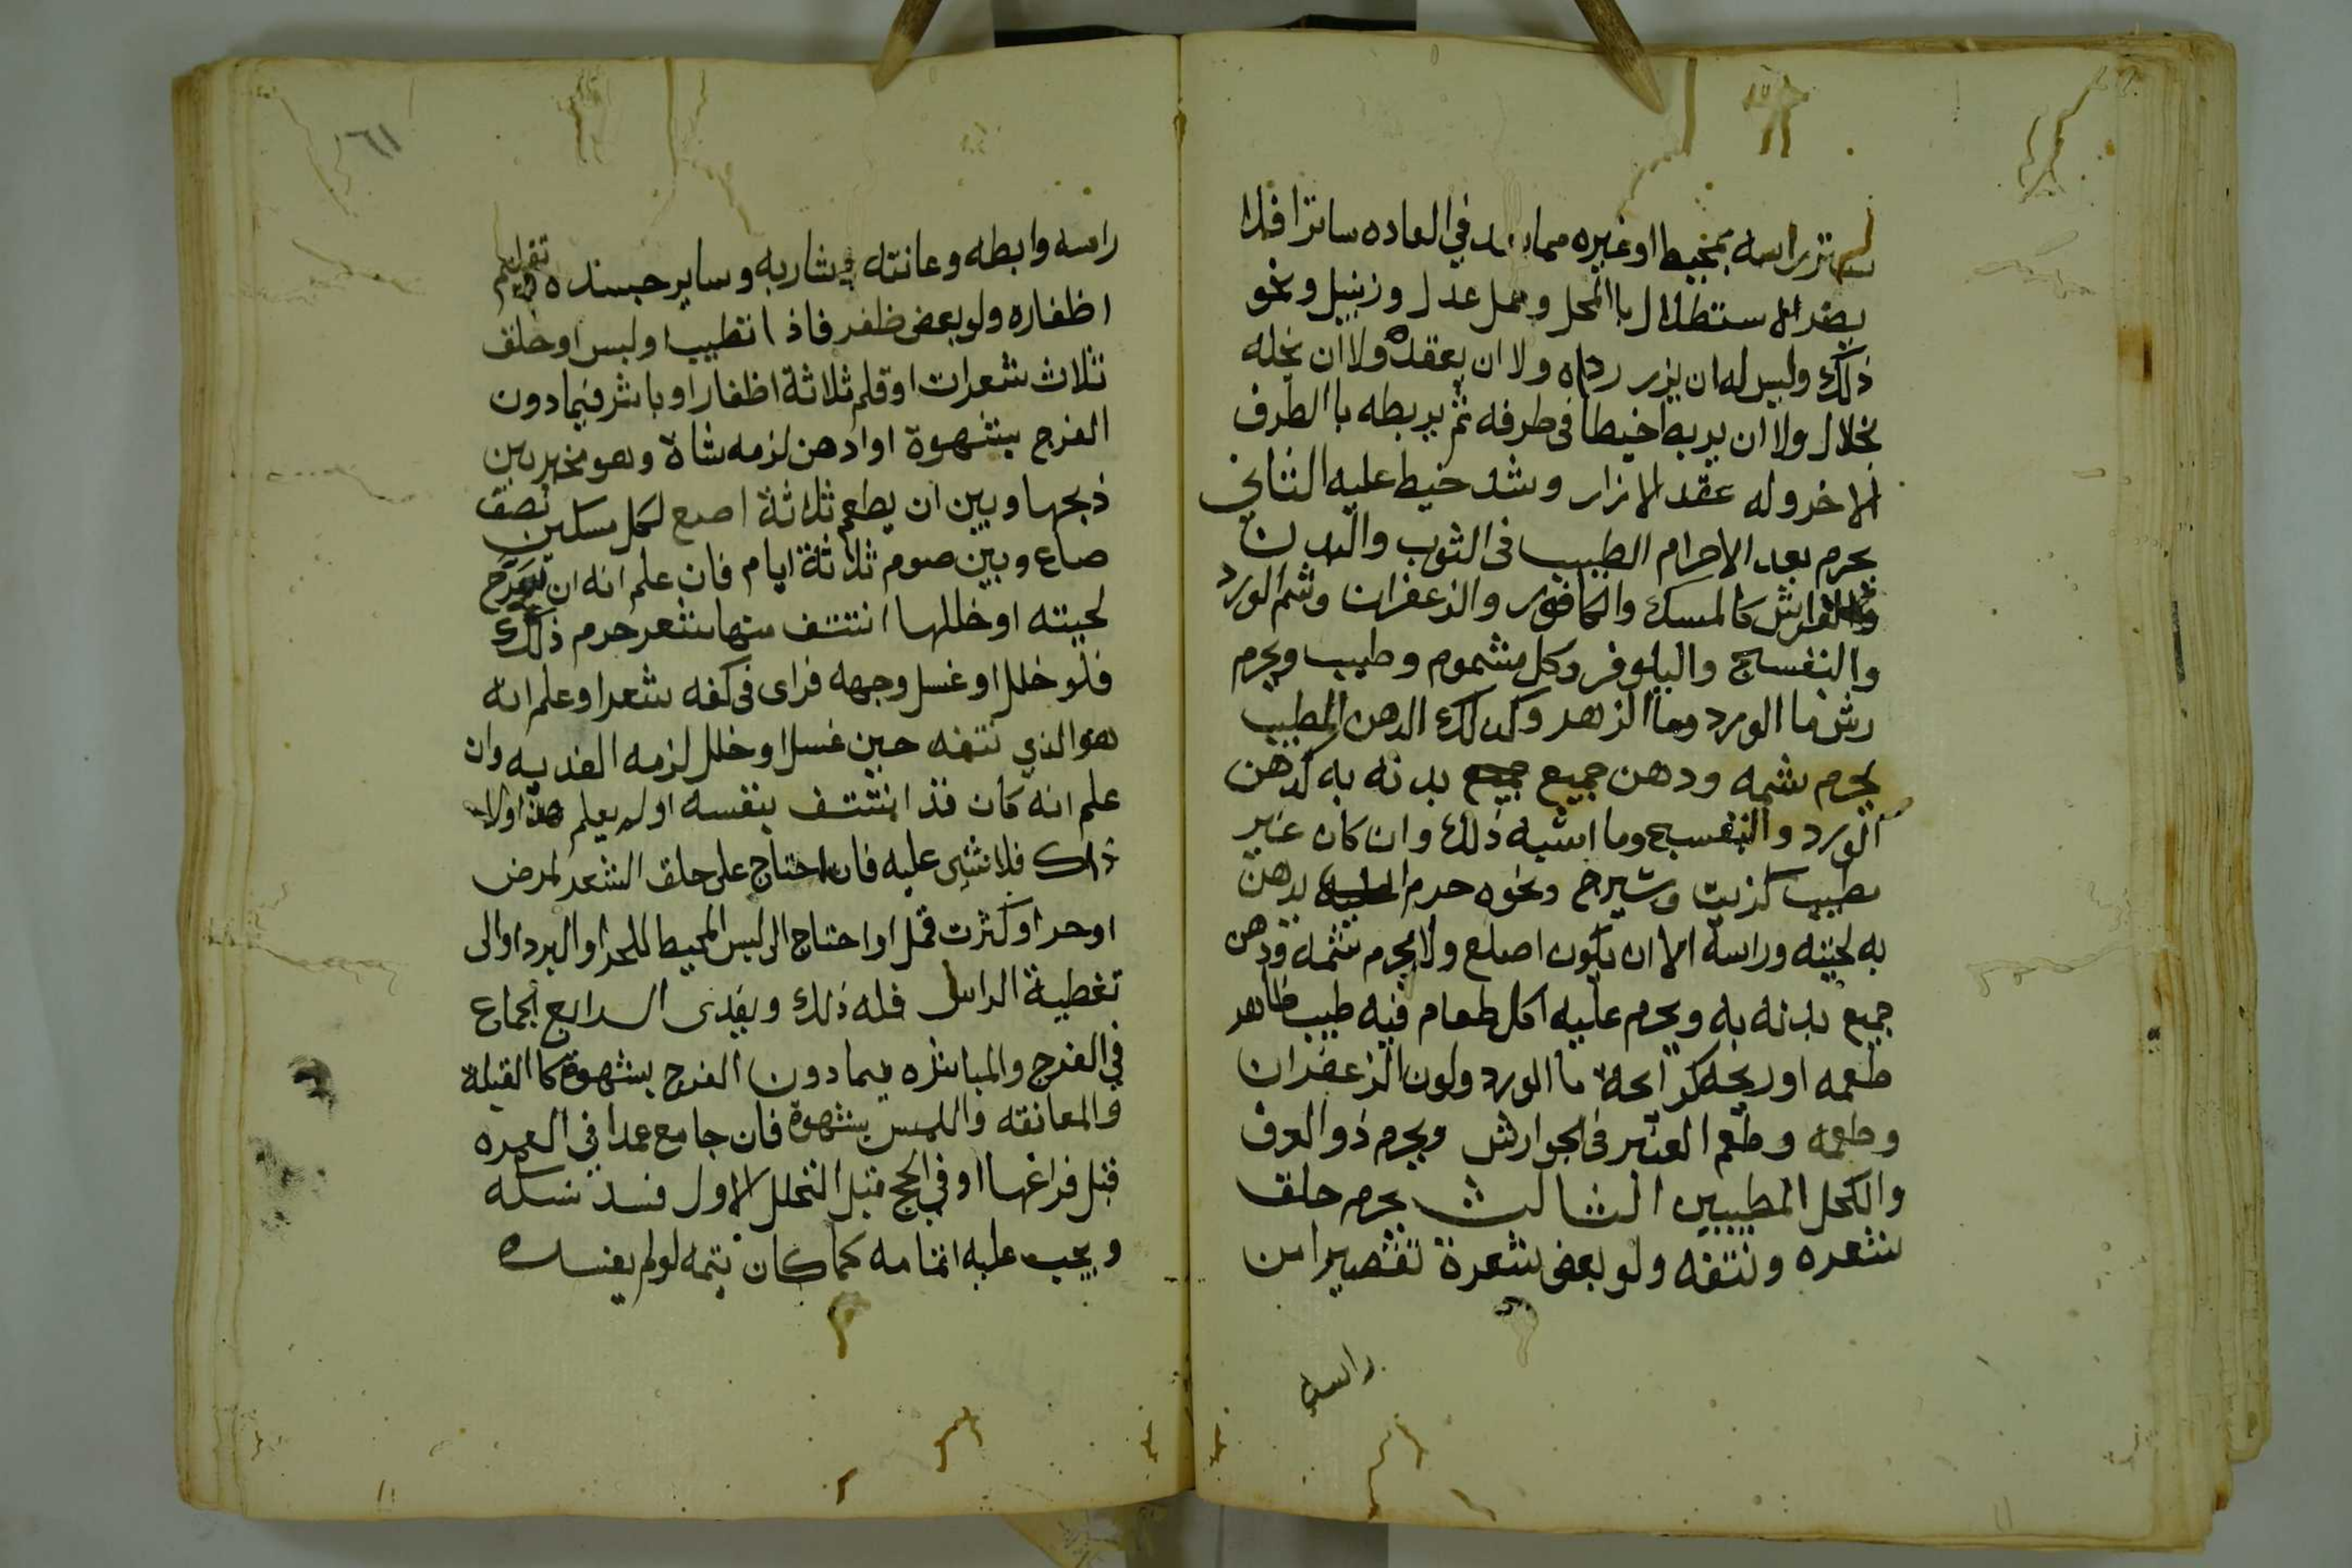 ستر راسه بمخيط او غيره مما يعد في العاده ساترا فلا
يضر الاستظلال باالمحل وحمل عدل وزنبيل ونحو
ذلك وليس له ان يزر رداه ولا ان يعقده ولا ان يخله
بخلال ولا ان يربط خيطا في طرفه ثم يربطه باالطرف
الاخر وله عقد الازار وشد خيط عليه الثاني
يحرم بعد الاحرام الطيب في الثوب والبدن
والفراش كالمسك والكافور والزعفران وشم الورد
والبنفسج والنيلوفر وكل مشموم وطيب ويحرم
رش ما الورد وما الزهر وكذلك الدهن المطيب
يحرم شمه ودهن جميع بدنه به كدهن
الورد والبنفسج وما اشبه ذلك وان كان غير
مطيب كزيت وشيرج ونحوه حرم يدهن
به لحيته وراسه الا ان يكون اصلع ولا يحرم شمه ودهن
جميع بدنه به ويحرم عليه اكل طعام فيه طيب ظاهر
طعمه او ريحه كرائحة ما الورد ولون الزعفران
وطعمه وطعم العنبر في الجوارش ويحرم ذو العرف
والكحل المطيبين الثالث يحرم حلق
شعره ونتفه ولو بعض شعرة تقصيرا من
راسه
١٦١
راسه وابطه وعانته وشاربه وساير جسده وتقليم
اظفاره ولو بعض ظفر فاذا تطيب او لبس او حلق
ثلاث شعرات او قلم ثلاثة اظفار او باشر فيما دون
الفرج بشهوة او ادهن لزمه شاة وهو مخير بين
ذبحها وبين ان يطعم ثلاثة اصع لكل مسكين نصف
صاع وبين صوم ثلاثة ايام فان علم انه ان سرح
لحيته او خللها انتتف منها شعر حرم ذلك
فلو خلل او غسل وجهه فراى في كفه شعرا وعلم انه
هو الذي نتفه حين غسل او خلل لزمه الفديه وان
علم انه كان قد انتتف بنفسه اولم يعلم هذا ولا
ذاك فلا شئ عليه فان احتاج على حلق الشعر لمرض
او حر او كثرت قمل او احتاج الى لبس المحيط للحر او البرد او الى
تغطية الراس فله ذلك ويفدى الرابع الجماع
في الفرج والمباشره فيما دون الفرج بشهوة كا القبلة
والمعانقه واللمس بشهوة فان جامع عمدا في العمره
قبل فراغها او في الحج قبل التحلل الاول فسد نسكه
ويجب عليه اتمامه كما كان يتمه لو لم يفسده